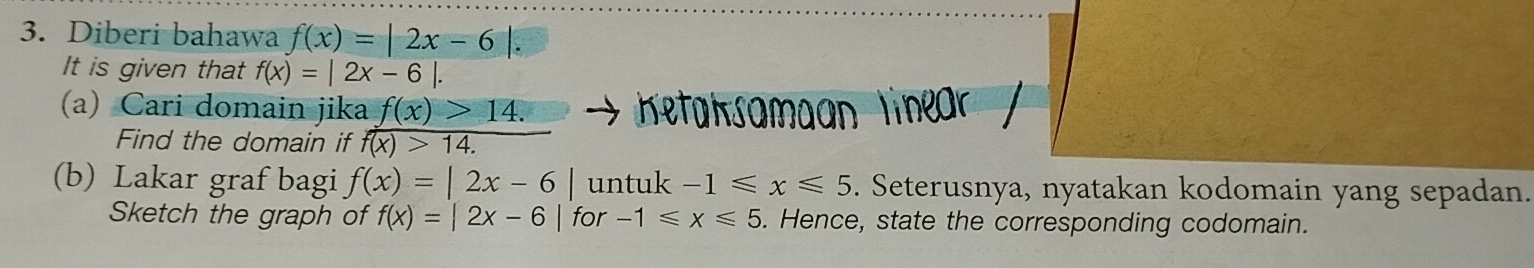 3. Diberi bahawa f(x) = | 2x – 6 |.
It is given that f(x) = | 2x – 6 |.
(a) Cari domain jika f(x) > 14. → Ketaksamaan linear /
Find the domain if f(x) > 14.
(b) Lakar graf bagi f(x) = | 2x – 6 | untuk –1 ⩽ x ⩽ 5. Seterusnya, nyatakan kodomain yang sepadan.
Sketch the graph of f(x) = | 2x – 6 | for –1 ⩽ x ⩽ 5. Hence, state the corresponding codomain.